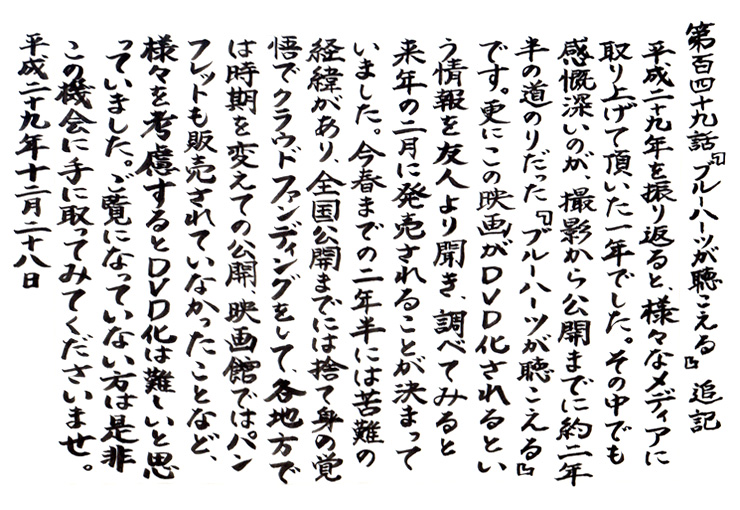 第百四十九話『ブルーハーツが聴こえる』追記
平成二十九年を振り返ると、様々なメディアに
取り上げて頂いた一年でした。その中でも
感慨深いのが、撮影から公開までに約二年
半の道のりだった『ブルーハーツが聴こえる』
です。更にこの映画がDVD化されるとい
う情報を友人より聞き、調べてみると
来年の二月に発売されることが決まって
いました。今春までの二年半には苦難の
経緯があり、全国公開までには捨て身の覚
悟でクラウドファンディングをして、各地方で
は時期を変えての公開、映画館ではパン
フレットも販売されていなかったことなど、
様々を考慮するとDVD化は難しいと思
っていました。ご覧になっていない方は是非
この機会に手に取ってみてくださいませ。
平成二十九年十二月二十八日